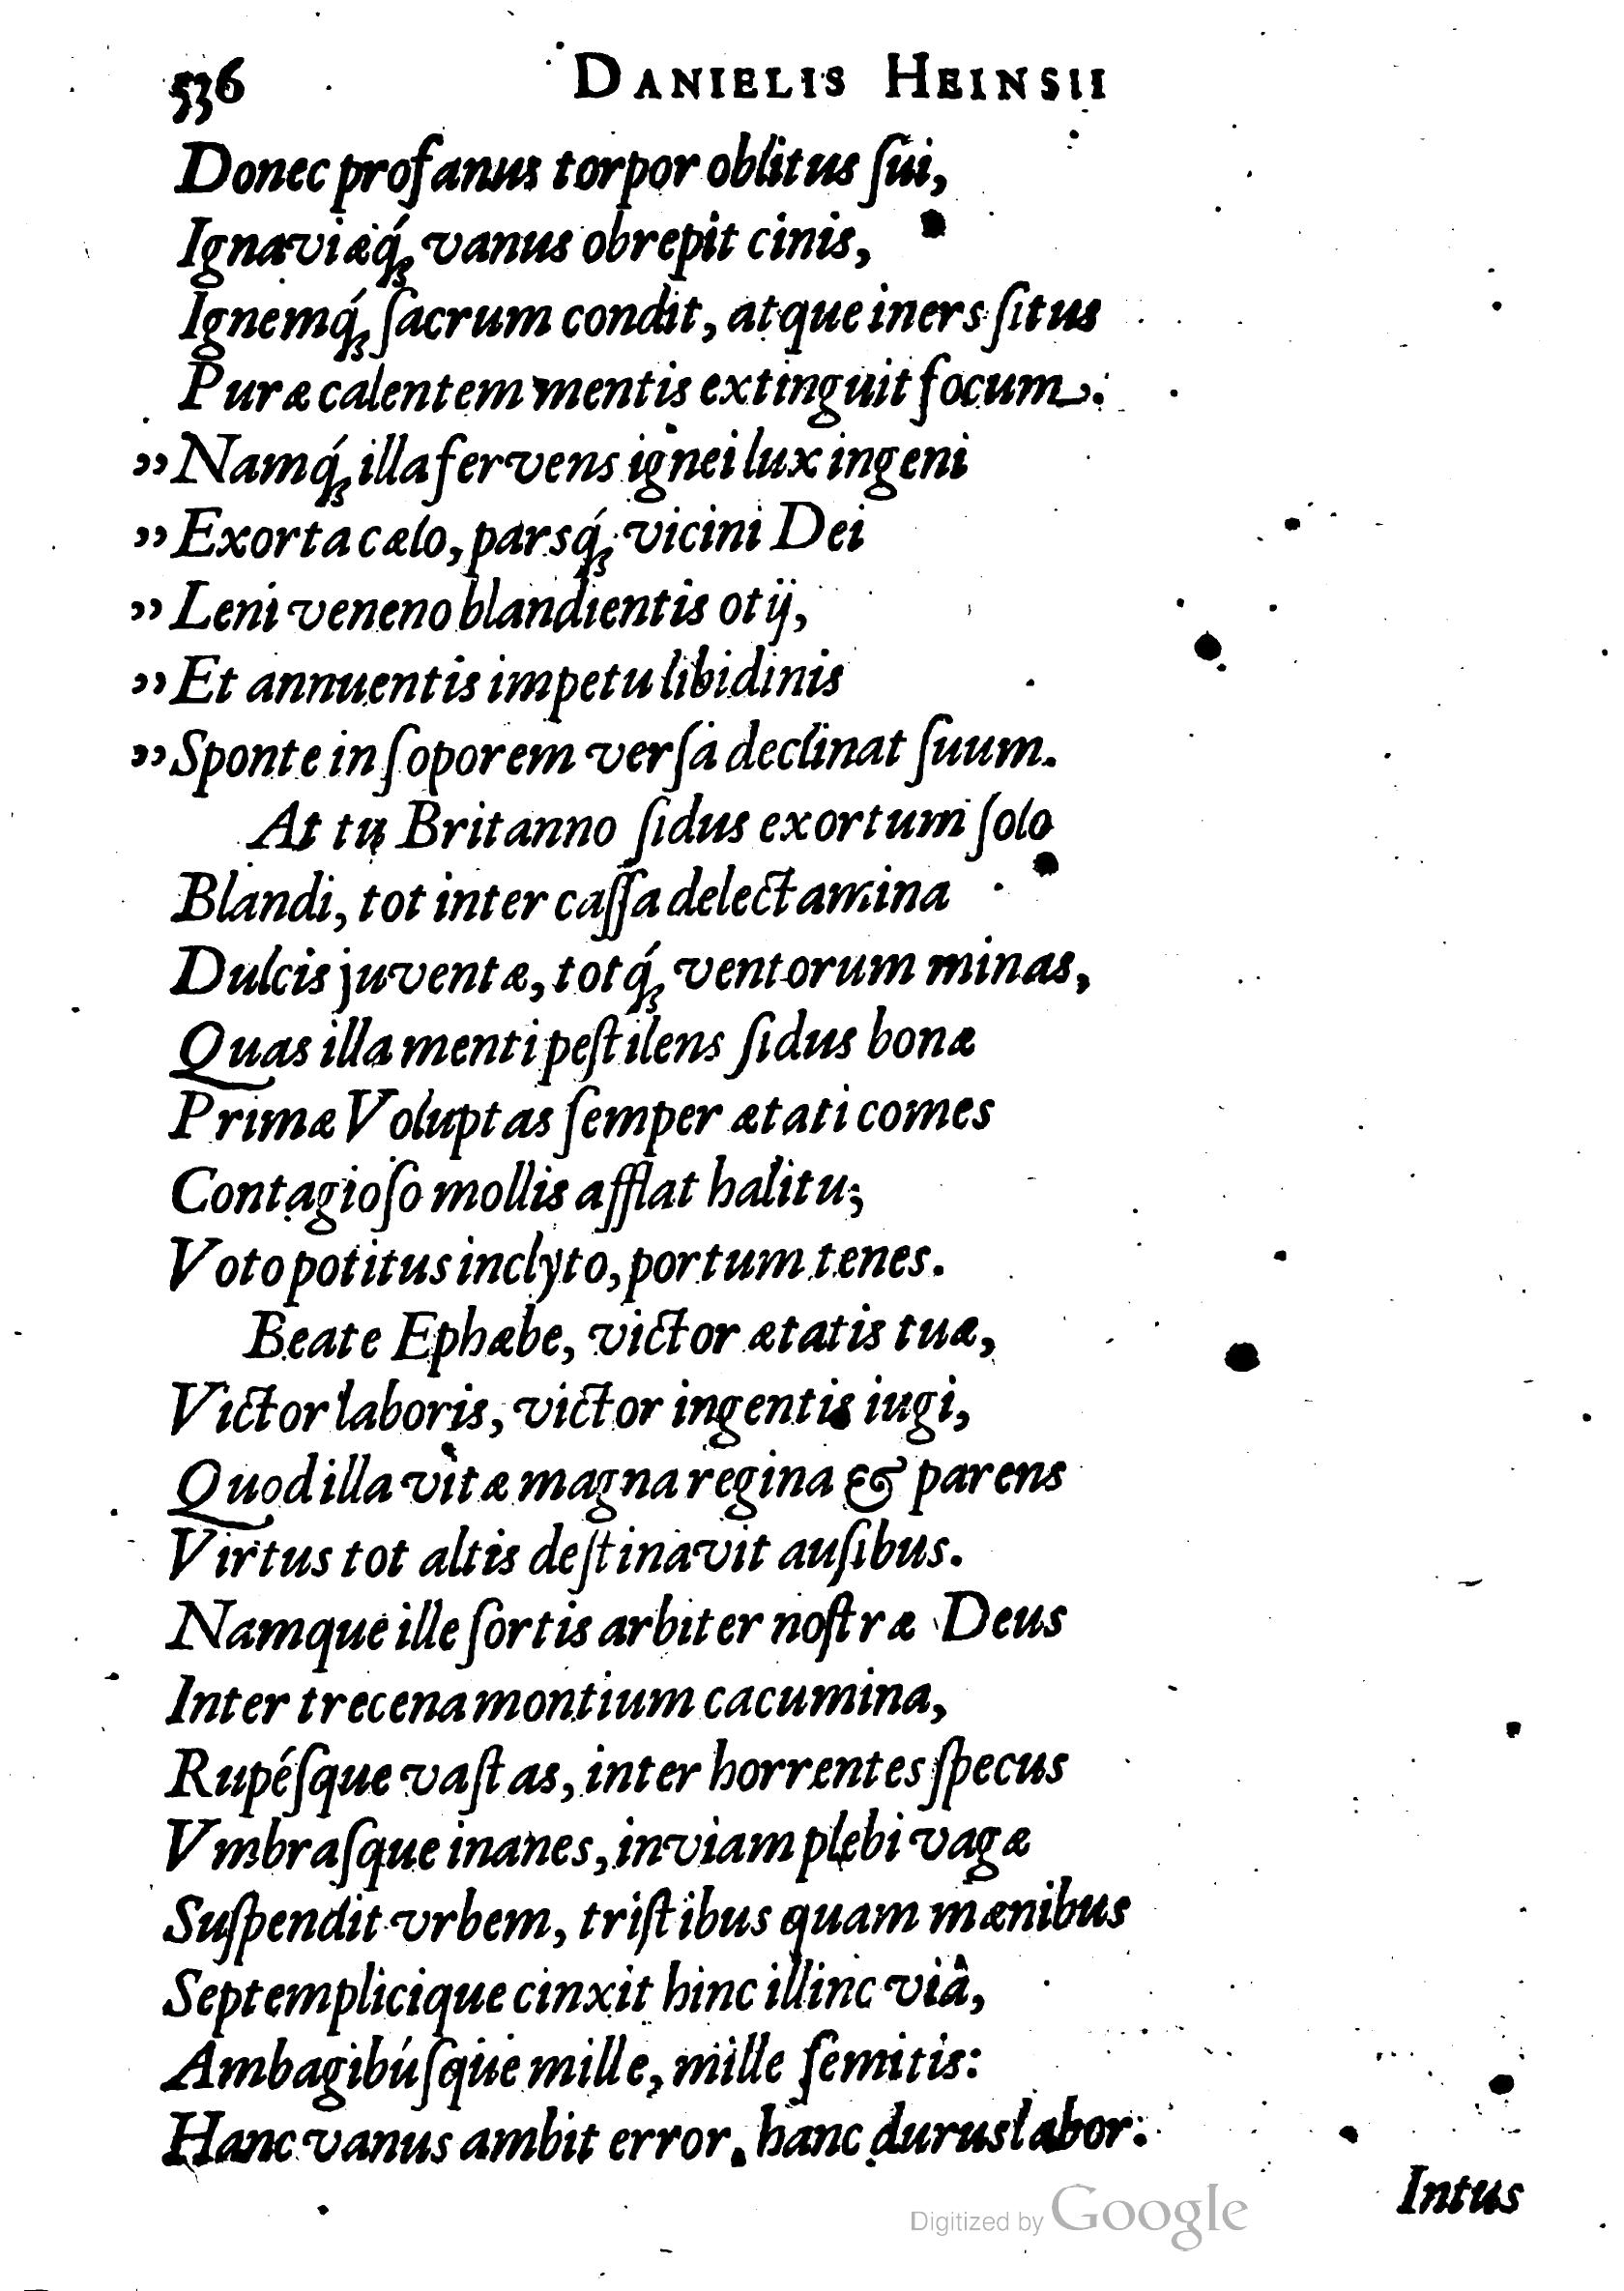 536 DANIELIS HEINSII
Donec profanus torpor oblitus ſui,
Ignaviæq́ꝫ vanus obrepit cinis,
Ignemq́ꝫ ſacrum condit, atque iners ſitus
Puræ calentem mentis extinguit focum.
„ Namq́ꝫ illa fervens ignei lux ingeni
„ Exorta cælo, parsq́ꝫ vicini Dei
„ Leni veneno blandientis otij,
„ Et annuentis impetu libidinis
„ Sponte in ſoporem verſa declinat ſuum.
At tu Britanno ſidus exortum ſolo
Blandi, tot inter caſſa delectamina
Dulcis juventæ, totq́ꝫ ventorum minas,
Quas illa menti peſtilens ſidus bonæ
Primæ Voluptas ſemper ætati comes
Contagioſo mollis afflat halitu;
Voto potitus inclyto, portum tenes.
Beate Ephæbe, victor ætatis tuæ,
Victor laboris, victor ingentis iugi,
Quod illa vitæ magna regina & parens
Virtus tot altis deſtinavit auſibus.
Namque ille ſortis arbiter noſtræ Deus
Inter trecena montium cacumina,
Rupéſque vaſtas, inter horrentes ſpecus
Vmbraſque inanes, inviam plebi vagæ
Suſpendit vrbem, triſtibus quam mænibus
Septemplicique cinxit hinc illinc viâ,
Ambagibúſque mille, mille ſemitis:
Hanc vanus ambit error, hanc durus labor:
Intus
Digitized by Google